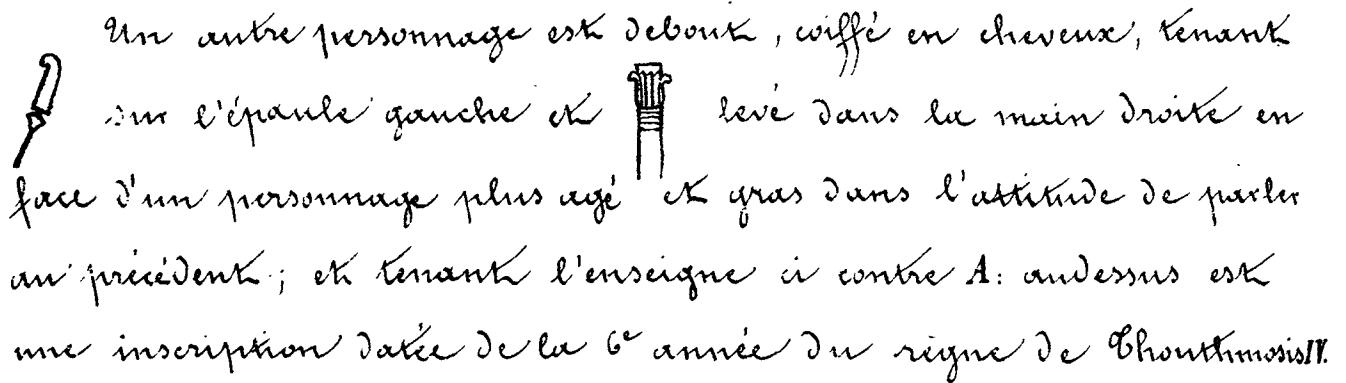 Un autre personnage est debout, coiffé en cheveux, tenant
sur l'épaule gauche et levé dans la main droite en
face d'un personnage plus agé et gras dans l'attitude de parler
au précédent; et tenant l'enseigne ci contre A: audessus est
une inscription datée de la 6e année du règne de Thouthmosis IV.